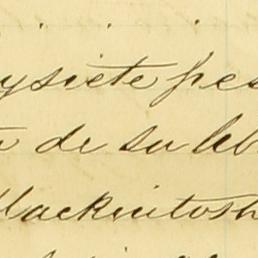 ysiete pes
de su leb
Mackintosh